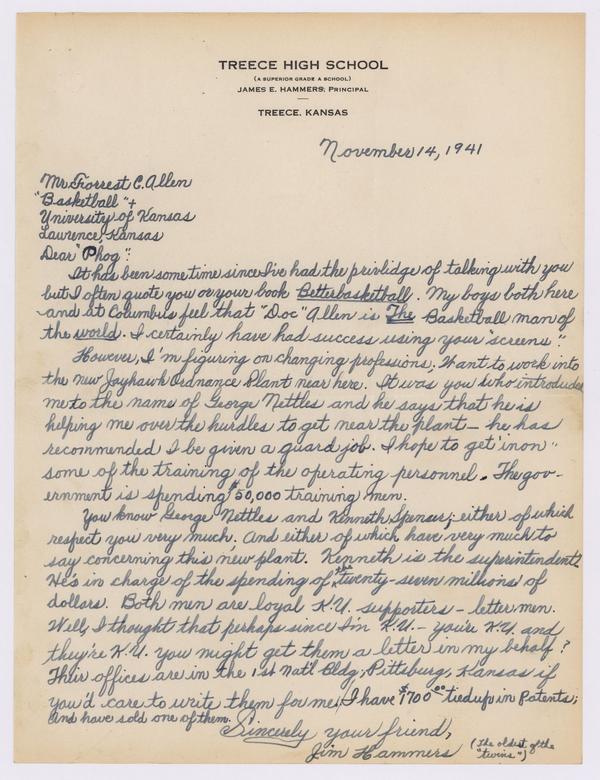 TREECE HIGH SCHOOL
(A SUPERIOR GRADE A SCHOOL)
JAMES E. HAMMERS, PRINCIPAL
TREECE, KANSAS
November 14, 1941
Mr. Forrest C. Allen
"Basketball" +
University of Kansas
Lawrence, Kansas
Dear "Phog":
It has been some time since I've had the privlidge of talking with you
but I often quote you or your book Betterbasketball. My boys both here
and at Columbus feel that "Doc" Allen is The Basketball man of
the world. I certainly have had success using your "screens".
However, I'm figuring on changing professions. Want to work into
the new Jayhawk Ordnance Plant near here. It was you who introduced
me to the name of George Nettles and he says that he is
helping me over the hurdles to get near the plant — he has
recommended I be given a guard job. I hope to get "in on"
some of the training of the operating personnel. The gov-
ernment is spending $50,000 training men.
You know George Nettles and Kenneth Spencer; either of which
respect you very much. And either of which have very much to
say concerning this new plant. Kenneth is the superintendent.
He's in charge of the spending of the twenty-seven millions of
dollars. Both men are loyal K.U. supporters — letter men.
Well, I thought that perhaps since I'm K.U. — you're K.U. and
they're K.U. you might get them a letter in my behalf?
Their offices are in the 1st Nat'l Bldg, Pittsburg, Kansas if
you'd care to write them for me. I have $1700.00 tied up in Patents;
and have sold one of them.
Sincerely your friend,
Jim Hammers (The oldest of the
"twins")